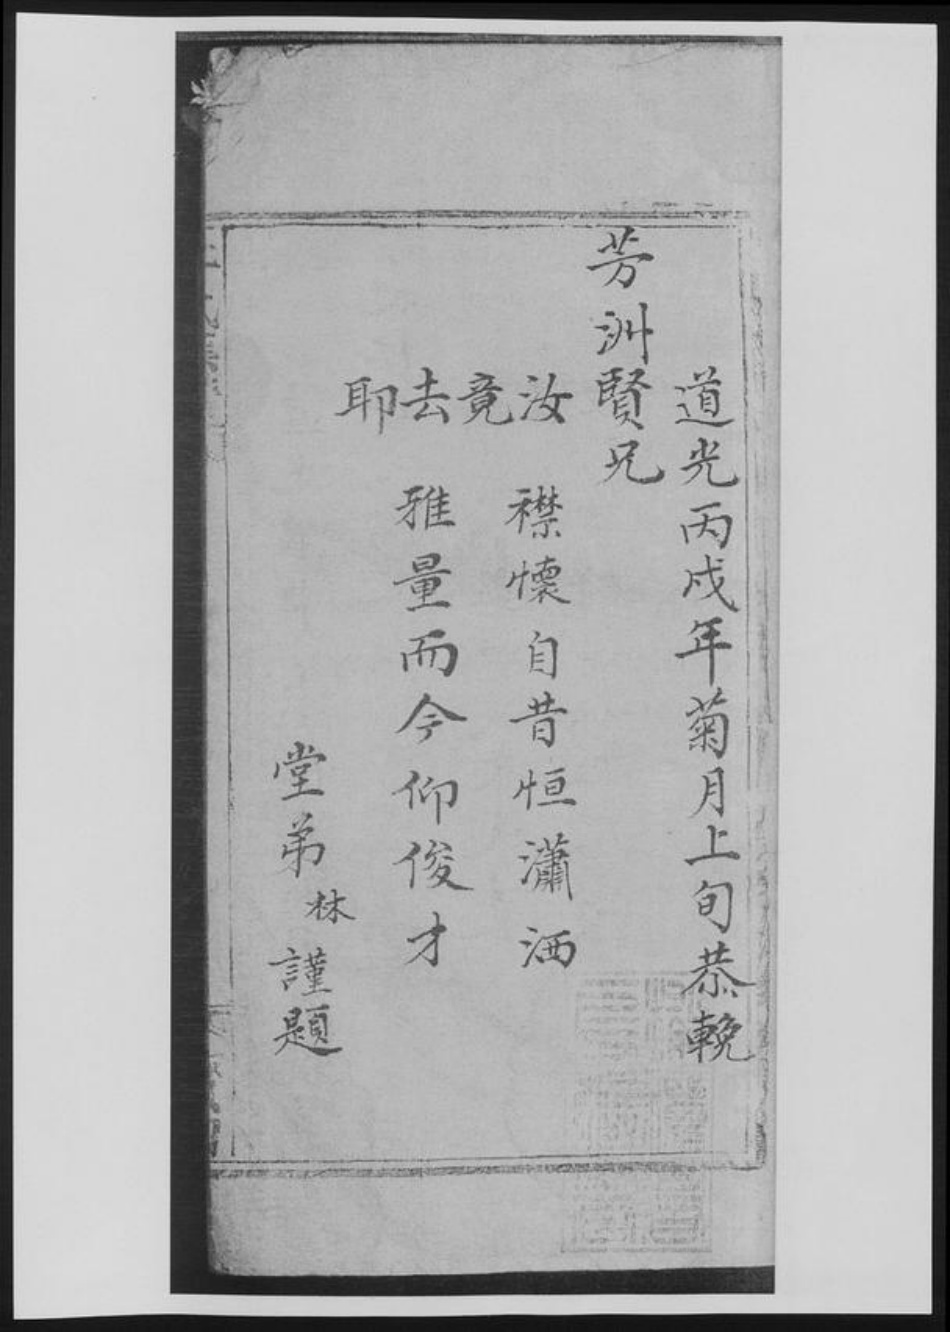 道光丙戌年菊月上旬恭輓
芳洲賢兄
汝竟去耶
襟懷自昔恒瀟洒
雅量而今仰俊才
堂弟林謹題